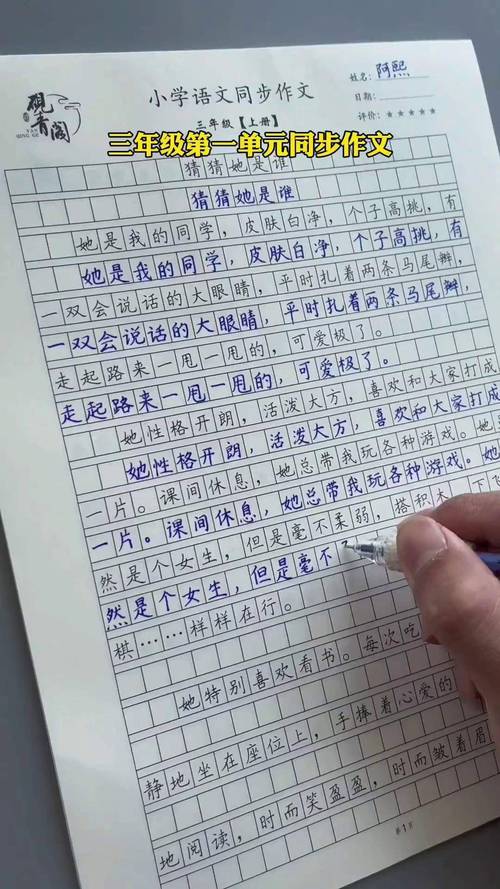 砚青阁
YAN QING GE
小学语文同步作文
三年级【上册】
姓名：阿熙
日期：
评价：★★★★★
三年级第一单元同步作文
猜猜她是谁
猜猜她是谁
她是我的同学，皮肤白净，个子高挑，有
她是我的同学，皮肤白净，个子高挑，有
一双会说话的大眼睛，平时扎着两条马尾辫，
一双会说话的大眼睛，平时扎着两条马尾辫，
走起路来一甩一甩的，可爱极了。
走起路来一甩一甩的，可爱极了。
她性格开朗，活泼大方，喜欢和大家打成
她性格开朗，活泼大方，喜欢和大家打成
一片。课间休息，她总带我玩各种游戏。她
一片。课间休息，她总带我玩各种游戏。她
然是个女生，但是毫不柔弱，搭积木、下飞
然是个女生，但是毫不
棋……样样在行。
她特别喜欢看书。每次吃
静地坐在座位上，手捧着心爱的
地阅读，时而笑盈盈，时而皱着眉
第1页